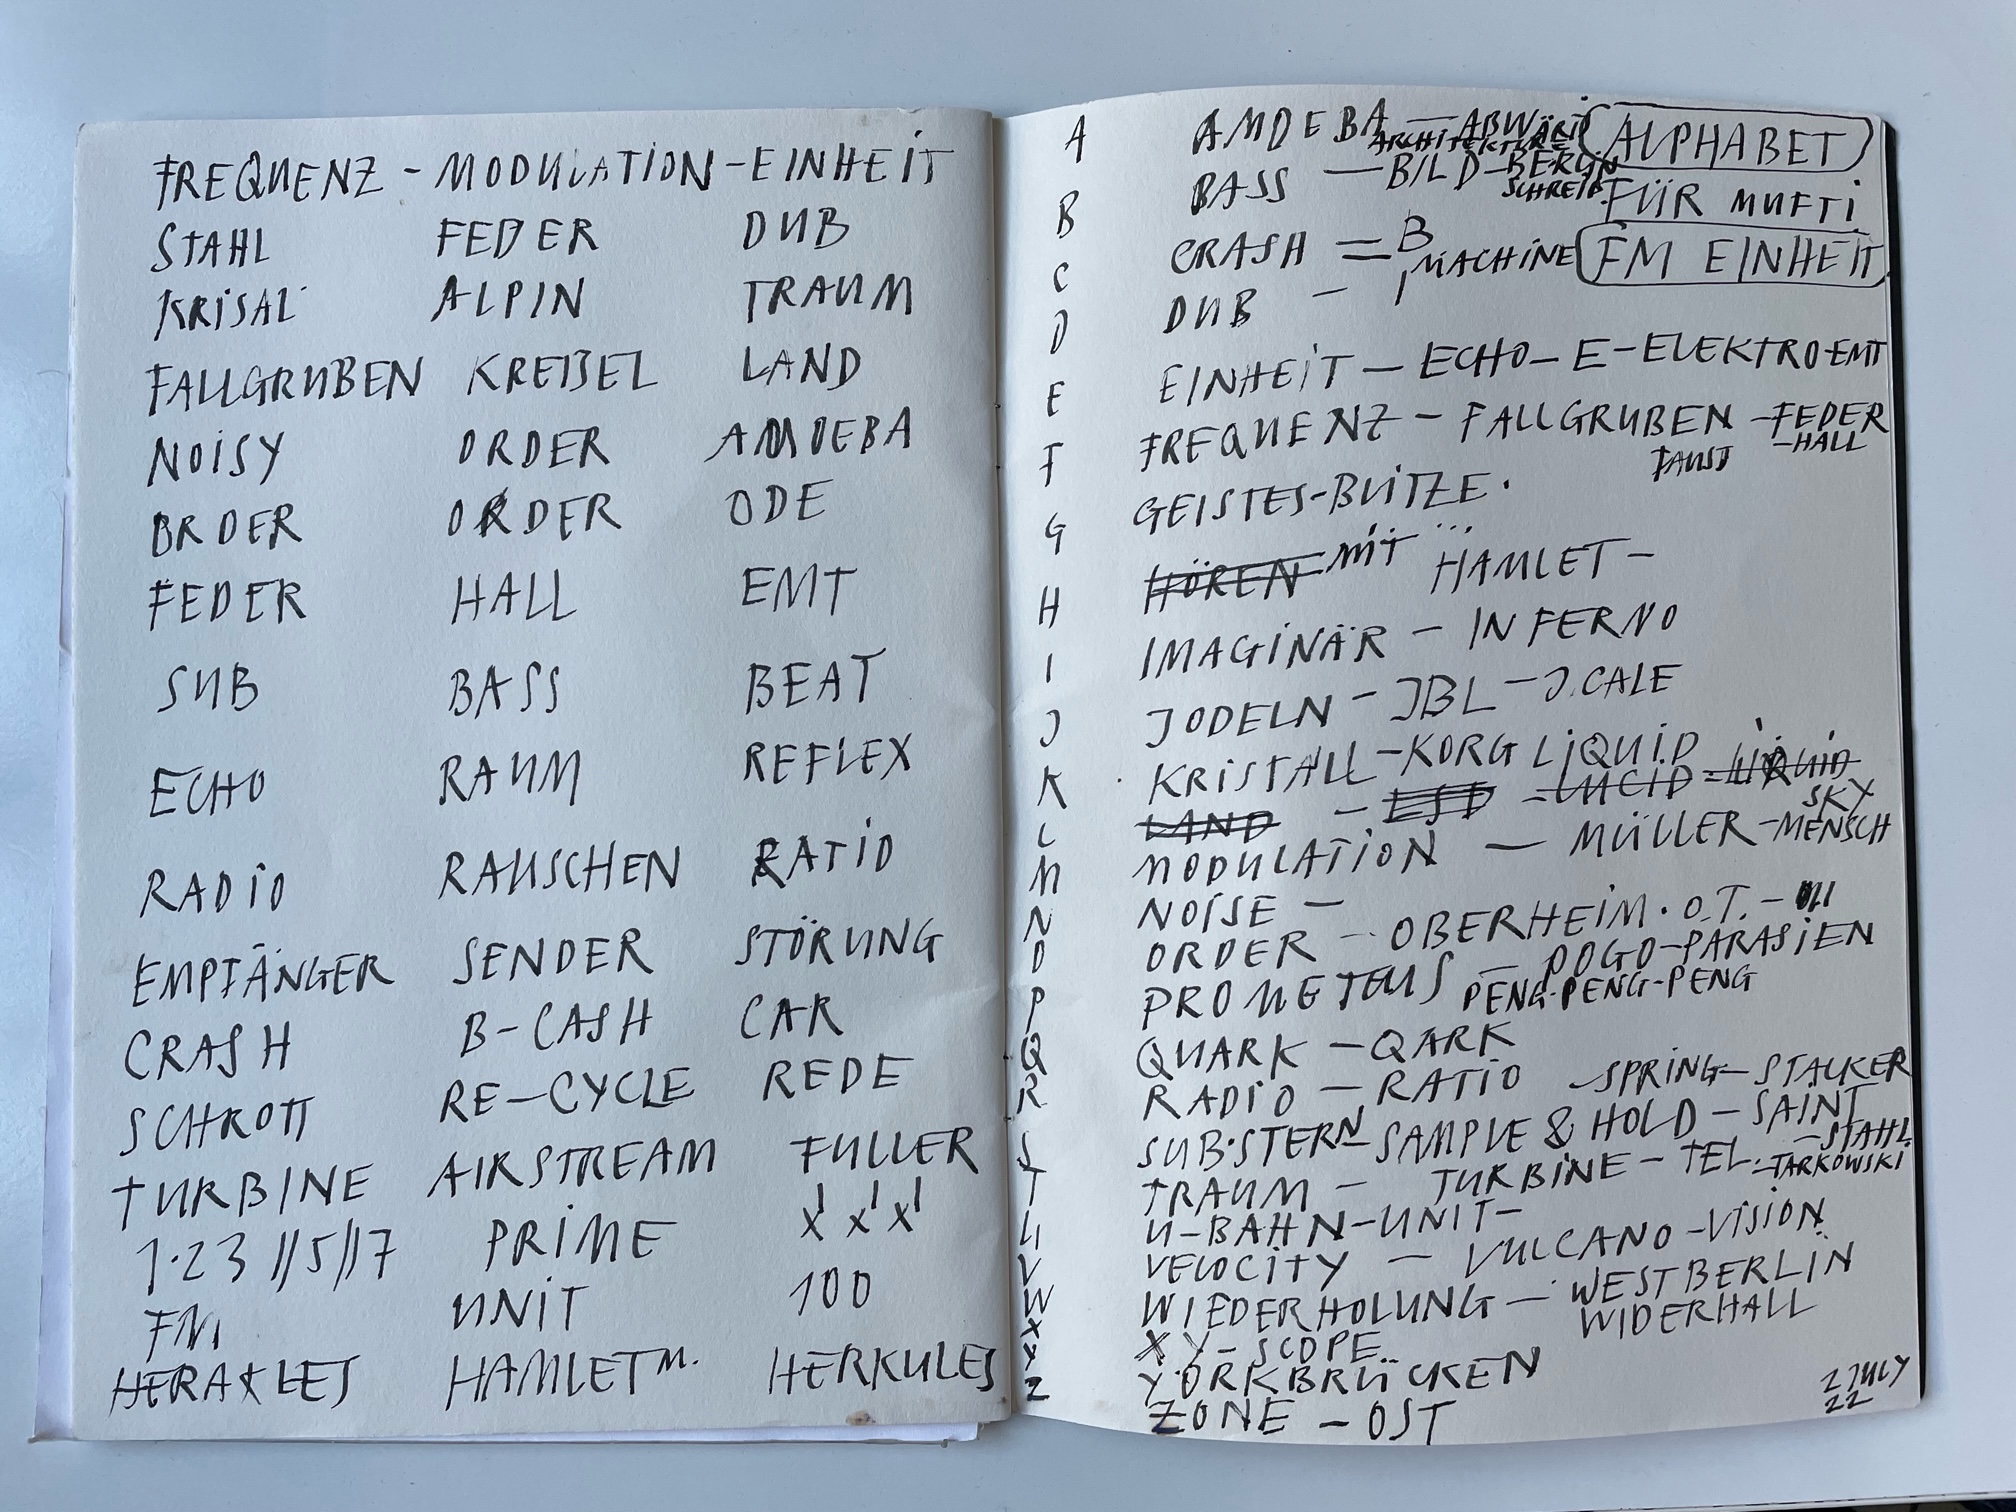 FREQUENZ - MODULATION - EINHEIT
STAHL FEDER DUB
KRISAL ALPIN TRAUM
FALLGRUBEN KREISEL LAND
NOISY ORDER AMOEBA
BRDER ORDER ODE
FEDER HALL EMT
SUB BASS BEAT
ECHO RAUM REFLEX
RADIO RAUSCHEN RATIO
EMPFÄNGER SENDER STÖRUNG
CRASH B-CASH CAR
SCHROTT RE-CYCLE REDE
TURBINE AIRSTREAM FULLER
1·23 //5//7 PRIME x' x' x'
FM UNIT 100
HERAKLES HAMLET M. HERKULES
ALPHABET
FÜR MUFTI
FM EINHEIT
A AMOEBA — ABWÄRTS
ARCHITEKTURE
B BASS — BILD - BERLIN
SCHREIB
C CRASH = B
MACHINE
D DUB —
E EINHEIT — ECHO — E — ELEKTRO EMT
F FREQUENZ — FALLGRUBEN — FEDER
FAUST — HALL
G GEISTES-BLITZE.
H HÖREN MIT ... HAMLET —
I IMAGINÄR — INFERNO
J JODELN — JBL — J.CALE
K KRISTALL — KORG LIQUID
L LAND — — LUCID — LIQUID
SKY
M MODULATION — MÜLLER — MENSCH
N NOISE —
O ORDER — OBERHEIM · O.T. —
P PROMETEUS — POGO — PARASIEN
PENG-PENG-PENG
Q QUARK — QARK
R RADIO — RATIO — SPRING — STALKER
S SUB·STERN — SAMPLE & HOLD — SAINT
— STAHL
T TRAUM — TURBINE — TEL. — TARKOWSKI
U U-BAHN — UNIT —
V VELOCITY — VULCANO — VISION
W WIEDERHOLUNG — WESTBERLIN
WIDERHALL
X XY — SCOPE
Y YORKBRÜCKEN
Z ZONE — OST
2 JULY
22